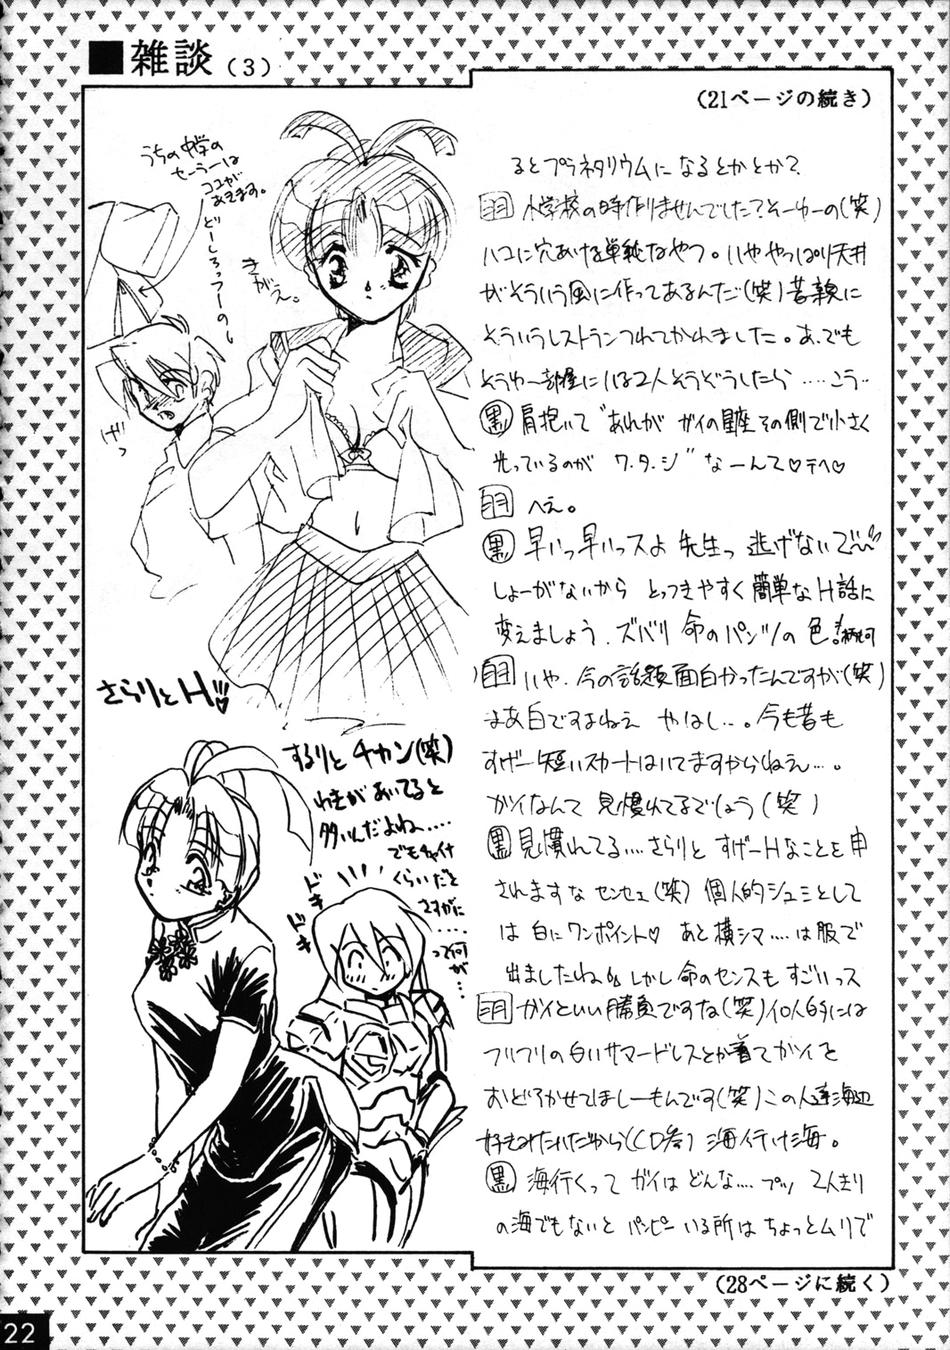 ■雑談(3)
(21ページの続き)
うちの中学の
セーラーは
ココが
あきます。
どーしろっつーの〜
きがえ。
げっ
さらりとH♡
するりと チカン(笑)
わきがあいてると
多いんだよね‥‥
でもチャイナ
くらいだと
さすがに
‥‥
って何
が…
ドキ
ドキ
るとプラネタリウムに なるとかとか?
小学校の時作りませんでした?そーゆーの(笑)
ハコに穴あける単純なやつ。いややっぱり天井
がそういう風に作ってあるんだ(笑)昔親に
そういうレストランつれてかれました。あ、でも
そうゆー部屋にいる2人そうぞうしたら‥‥こう‥
黒 肩抱いて"あれが ガイの星座その側で小さく
光っているのが ワ・タ・シ"なーんて♡テヘ♡
へえ。
黒 早いっ早いっスよ 先生っ 逃げないで〜
しょーがないから とっつきやすく簡単なH話に
変えましょう。ズバリ 命のパンツの色!
いや、今の話題面白かったんですが(笑)
まあ白ですよねえ やはし…。今も昔も
すげー短いスカートはいてますからねえ…。
ガイなんて 見慣れてるでしょう(笑)
黒 見慣れてる‥‥さらりと すげーHなことを申
されますな センセェ(笑) 個人的シュミとして
は 白にワンポイント♡ あと横シマ‥‥は服で
出ましたね。しかし命のセンスも すごいっス
ガイといい勝負ですな(笑)個人的には
フリフリの白いサマードレスとか着てガイを
おどろかせてほしーもんです(笑)この人達海辺
好きみたいだから(CD参) 海行け海。
黒 海行くって ガイは どんな‥‥プッ 2人きり
の海でもないと パンピー いる所は ちょっとムリで
(28ページに続く)
22